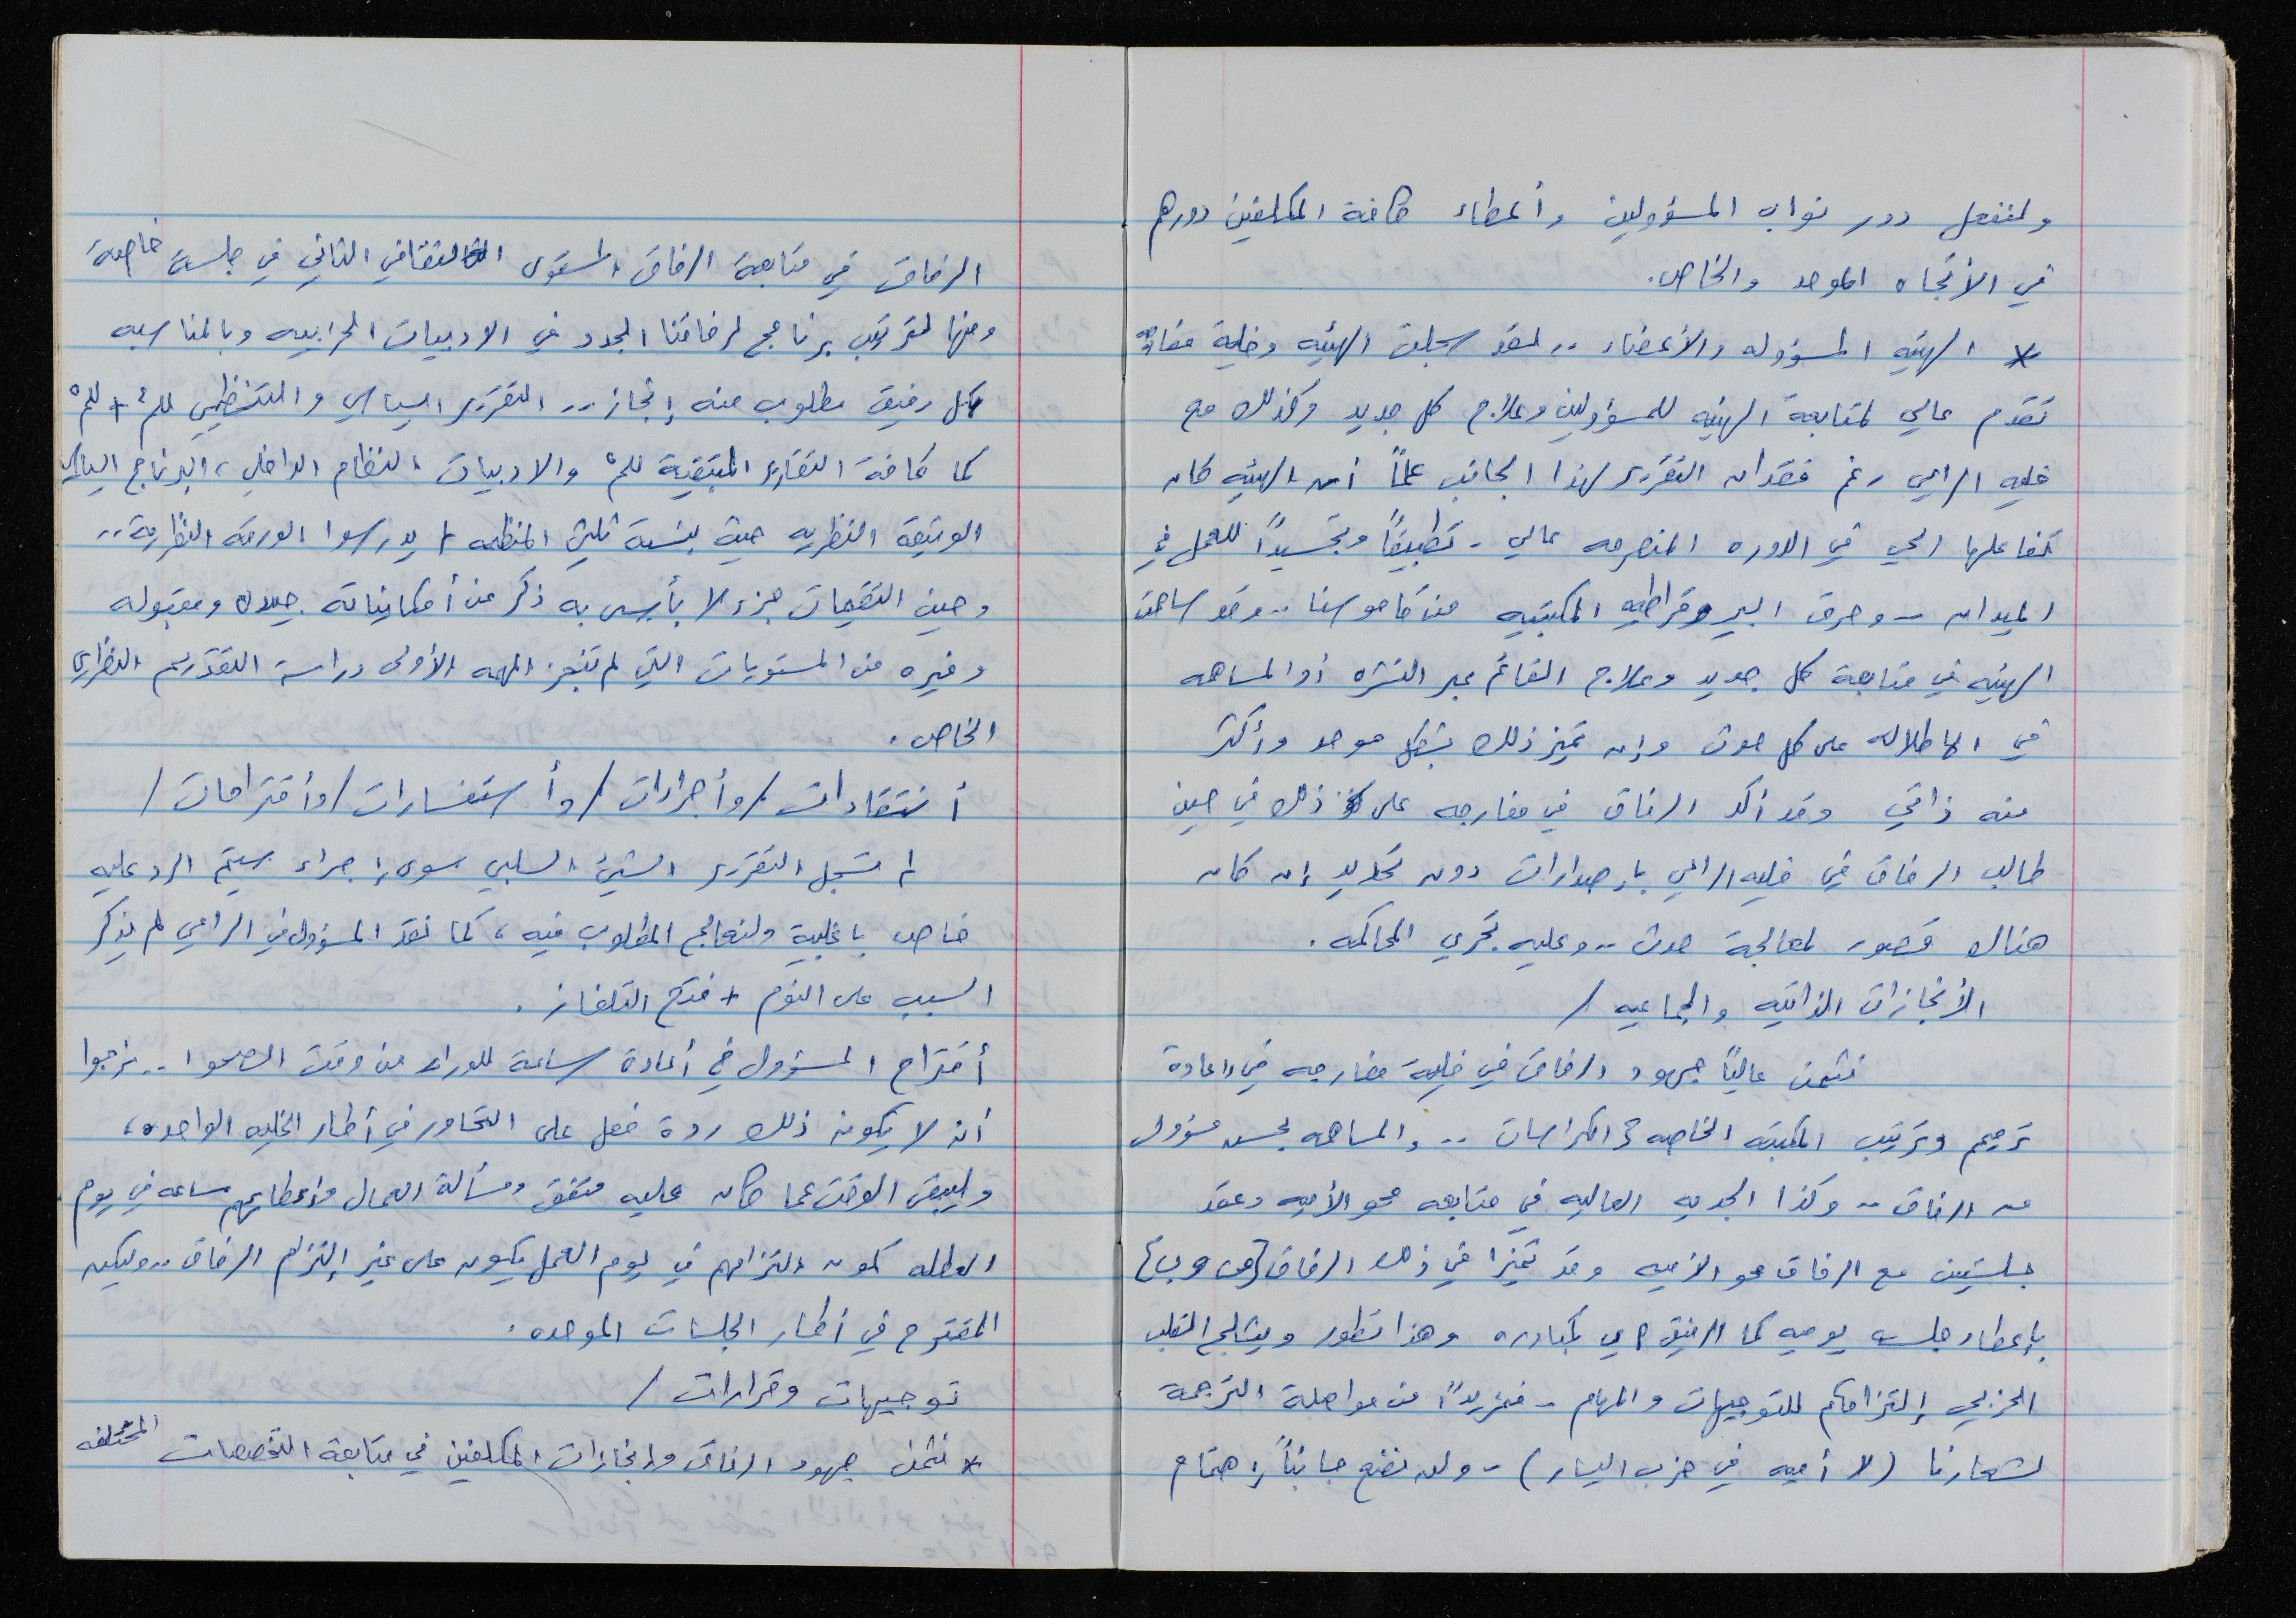 ولنفعل دور نواب المسؤولين وأعطاء كافة المكلفين دورهم
في الأتجاه الموحد والخاص.
* الهيئه المسؤوله والأعضاء .. لقد سجلت الهيئه وخلية مفارجه
تقدم عالي لمتابعة الهيئه للمسؤولين وعلاج كل جديد وكذلك مع
خليه الرامي رغم فقدان التقرير لهذا الجانب علماً أن الهيئه كان
تفاعلها الحي في الدوره المنصرمه عالي - تطبيقاً وتجسيداً للعمل في
الميدان - وحرق البيروقراطيه المكتبيه من قاموسنا .. وقد ساهمت
الهيئه في متابعة كل جديد وعلاج القائم عبر النشره أو المساهمه
في الاطلاله على كل حدث وإن تميز ذلك بشكل موحد وأكثر
منه ذاتي وقد أكد الرفاق في مفارجه على ذلك في حين
طالب الرفاق في خليه الرامي بإصدارات دون تحديد إن كان
هناك قصور لمعالجة حدث .. وعليه تجري المحاكمه.
الأنجازات الذاتيه والجماعيه /
نثمن عالياً جهود الرفاق في خلية مفارجه في إعادة
ترميم وترتيب المكتبه الخاصه الكراسات .. والمساهمه لحسد مسؤول
من الرفاق .. وكذا الجديه العاليه في متابعه محو الأميه وعقد
جلستين مع الرفاق محو الأميه وقد تميزا في ذلك الرفاق
بإعطاء جلسه يوميه كما الرفيق بمبادره وهذا تطور ويثلج القلب
الحزبي إلتزامكم للتوجيهات والمهام - فمزيداً من مواصلة الترجمة
لشعارنا (لا أميه في حزب اليسار) - ولن نضع جانباً إهتمام
الرفاق في متابعة الرفاق المستوى الثقافي الثاني في جلسة خاصة
ومنها لترتيب برنامج لرفاقنا الجدد في الادبيات الحزبيه وبالمناسبه
كل رفيق مطلوب منه إنجاز .. التقرير السياسي والتنظيمي للم٤ + للم٥
كما كافة التقارير المتبقية للم٥ والادبيات النظام الداخلي، البرنامج السياسي
الوثيقة النظريه حيث بنسبة ثلثي المنظمه لم يدرسوا الورقه النظرية ..
وحين التقيمات جزء لا بأس به ذكر من أمكانياته جيده ومقبوله
وغيره من المستويات التي لم تنجز المهمه الأولى دراسة التقرير النظري
الخاص.
أنتقادات / وأجراءات / وأستفسارات / وأقتراحات /
لم تسجل التقرير الشيئ السلبي سوى إجراء سيتم الرد عليه
خاص باغلبية ولنعالج المطلوب فيه، كما نقد المسؤول في الرامي لم يذكر
السبب على النوم + فتح التلفاز.
أقتراح المسؤول في أعادة ساعة للوراء من وقت الصحوا .. نرجوا
أن لا يكون ذلك ردة فعل على التحاور في أطار الخليه الواحده،
وليبقى الوقت عما كان عليه متفق ومسألة العمال وإعطايهم ساعه في يوم
العطله كون التزامهم في يوم العمل يكون على غير إلتزام الرفاق .. وليكن
المقترح في أطار الجلسات الموحده.
توجيهات وقرارات /
* نثمن جهود الرفاق وإنجازات المكلفين في متابعة التخصصات المختلفه